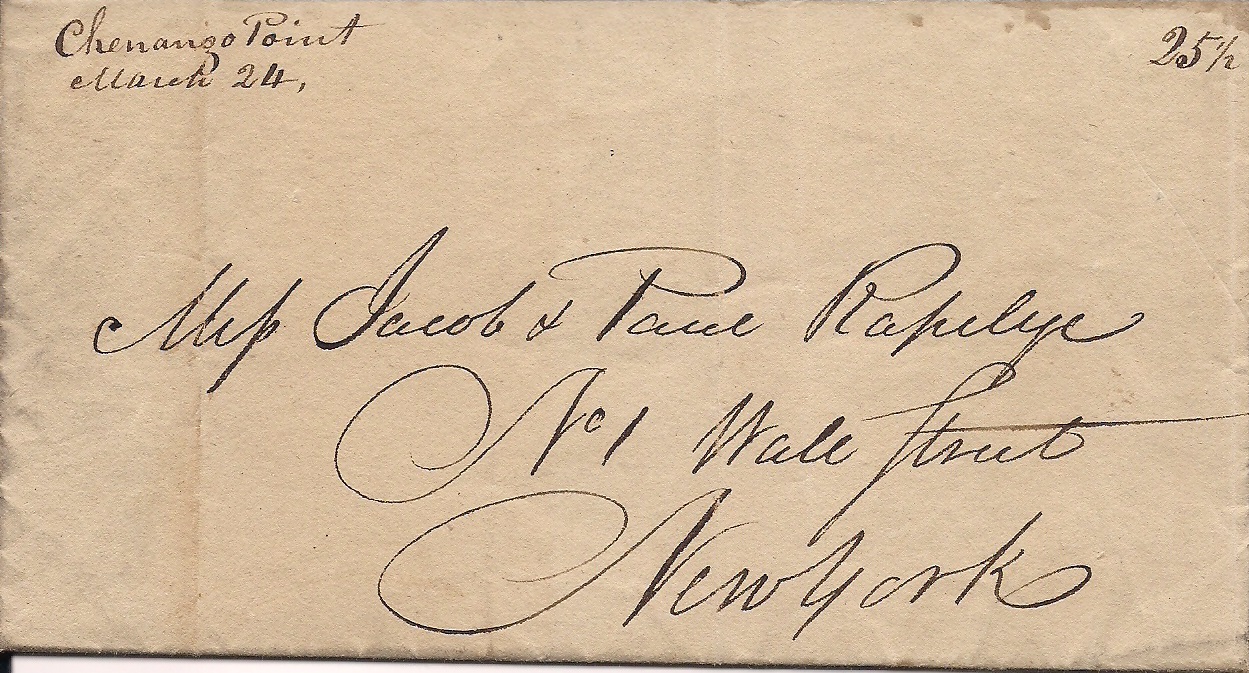 Chenango Point
March 24,
25 1/2
Mess Jacob & Paul Rapelye
No 1 Wall Street
New York